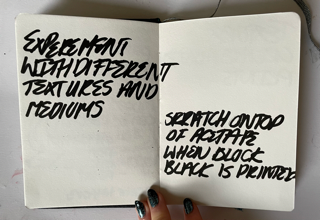 EXPEREMENT
WITH DIFFERENT
TEXTURES AND
MEDIUMS
SCRATCH ONTOP
OF ACETATE
WHEN BLOCK
BLACK IS PRINTED